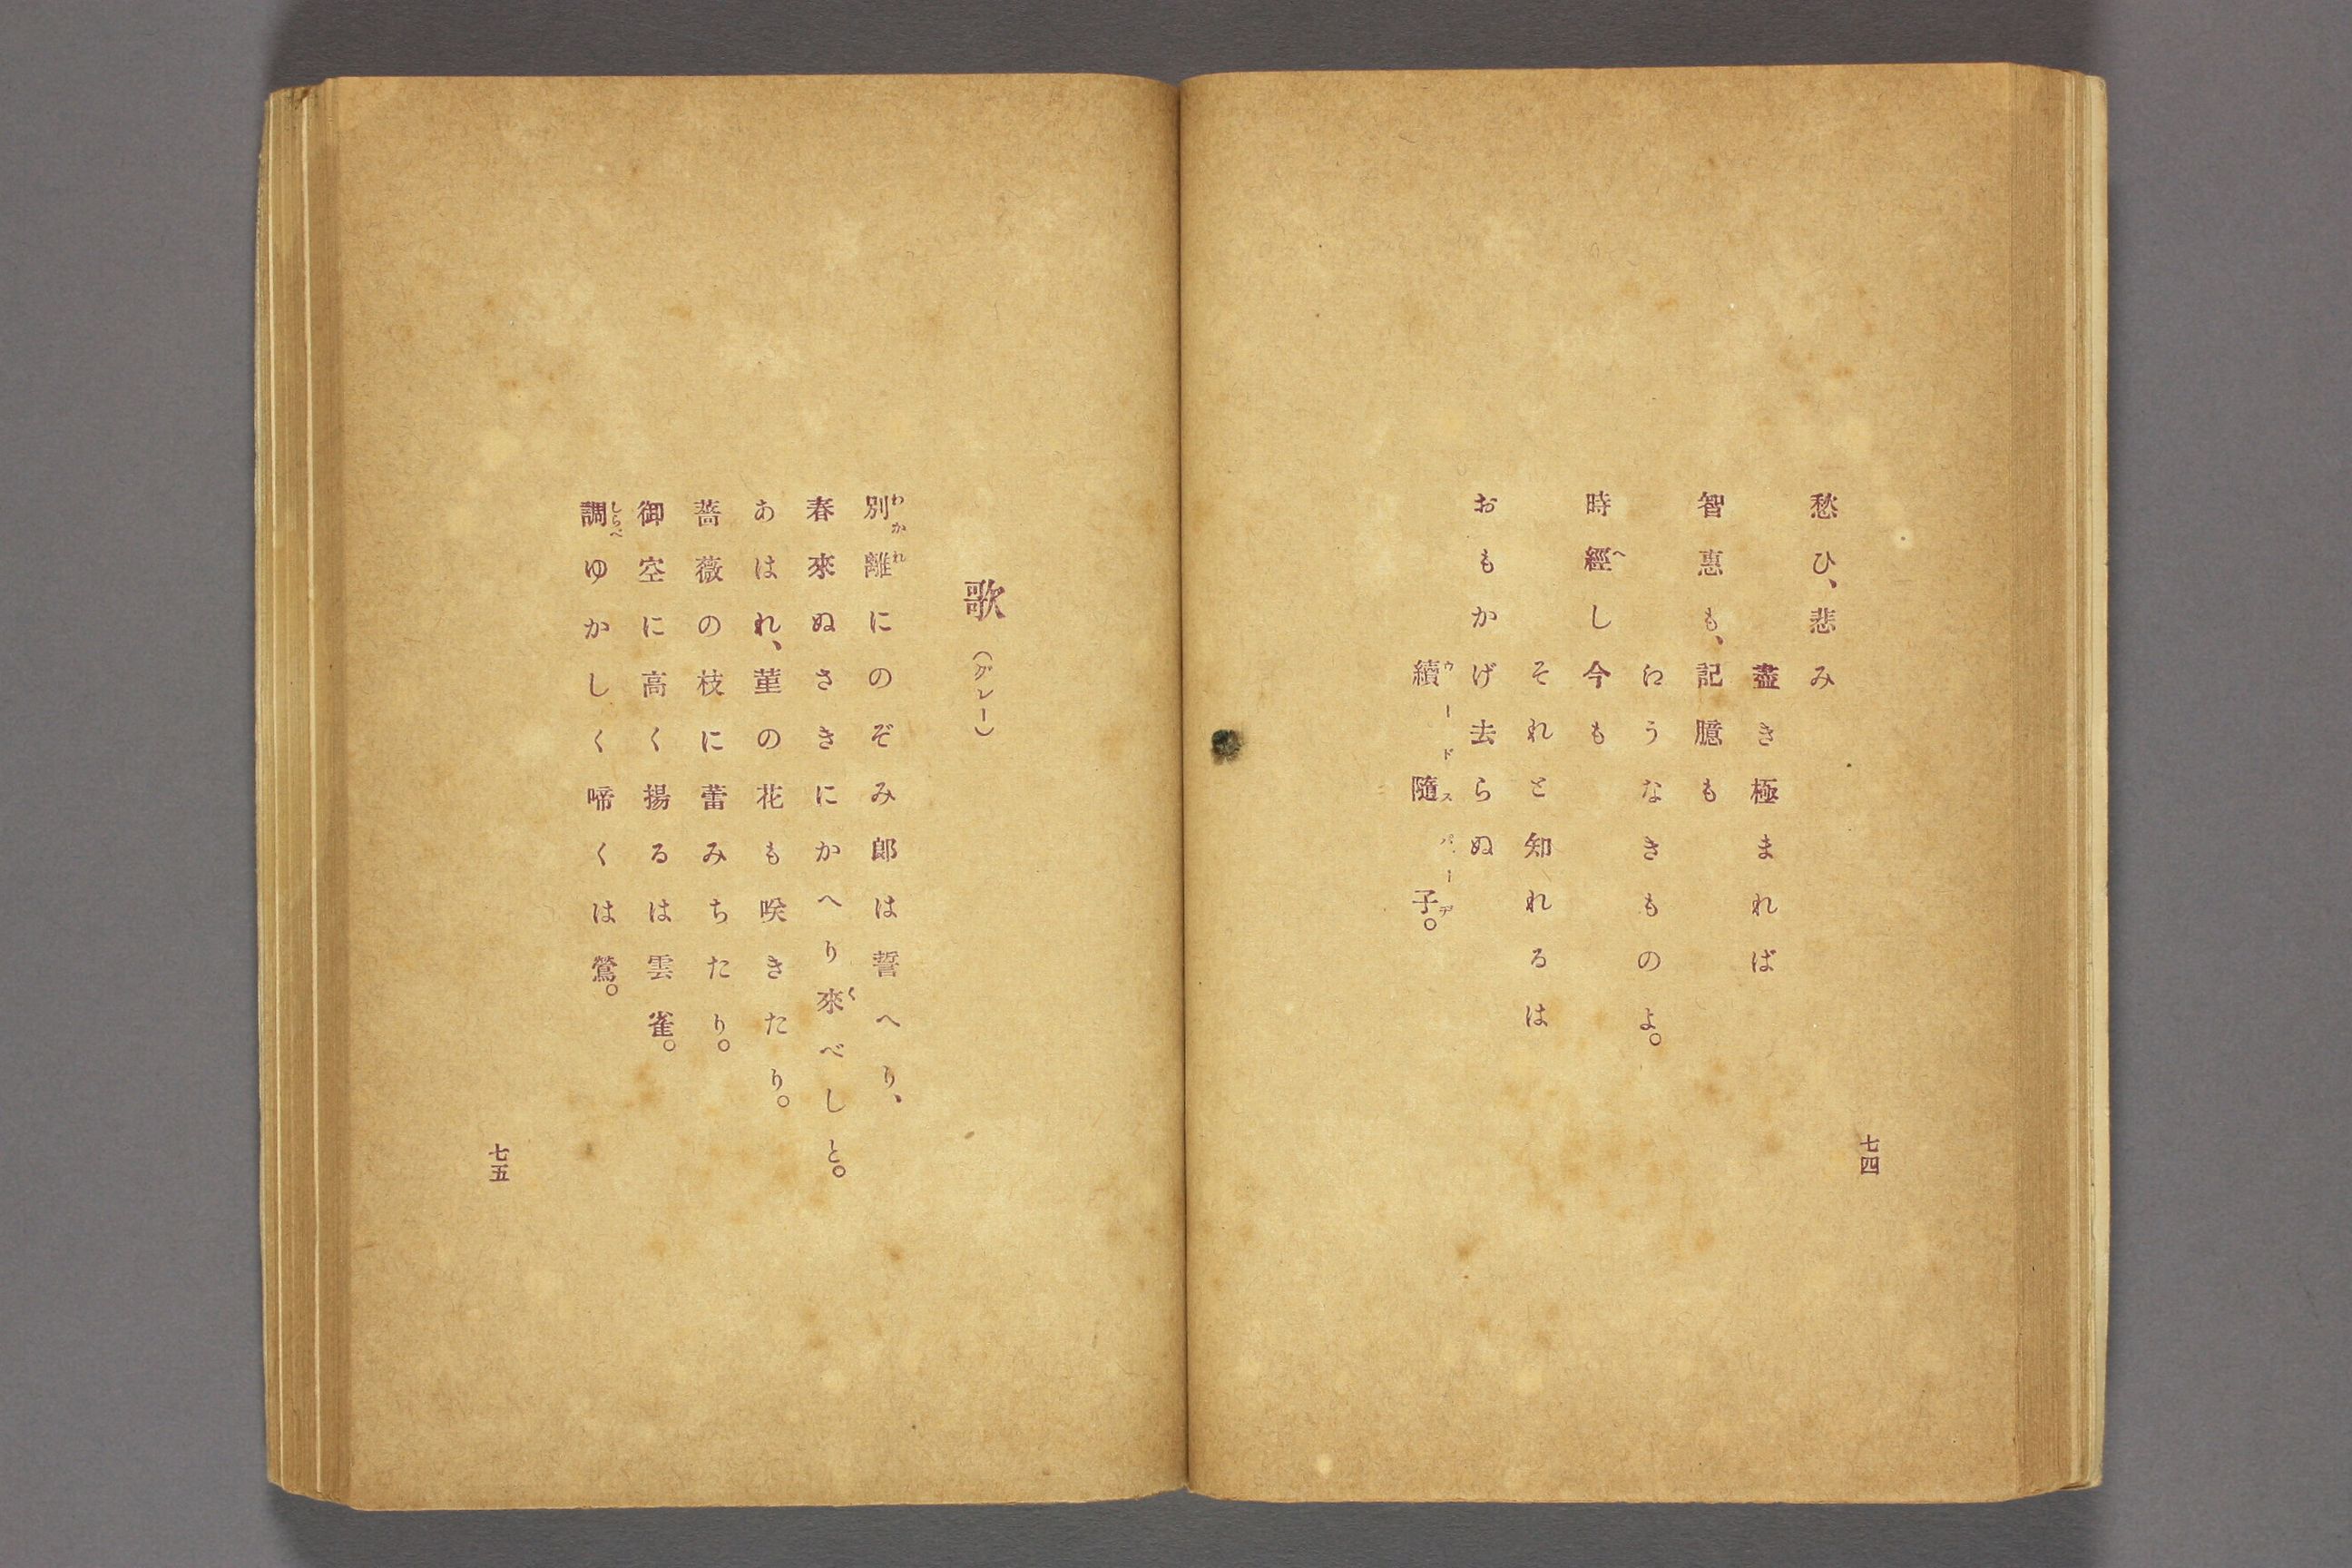 七四
愁ひ、悲み
盡き極まれば
智惠も、記臆も
𛀁うなきものよ。
へ
時經し今も
それと知れるは
おもかげ去らぬ
ウードスパーヂ
續隨子。
歌（グレー）
わかれ
別離にのぞみ郎は誓へり、
く
春來ぬさきにかへり來べしと。
あはれ、菫の花も咲きたり。
薔薇の枝に蕾みちたり。
御空に高く揚るは雲雀。
しらべ
調ゆかしく啼くは鶯。
七五